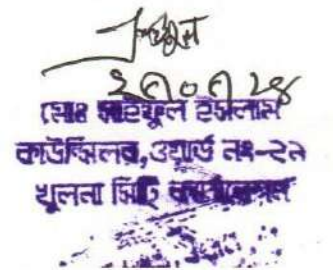 ২৭০৭২৪
মোঃ সাইফুল ইসলাম
কাউন্সিলর,ওয়ার্ড নং-২৯
খুলনা সিটি কর্পোরেশন